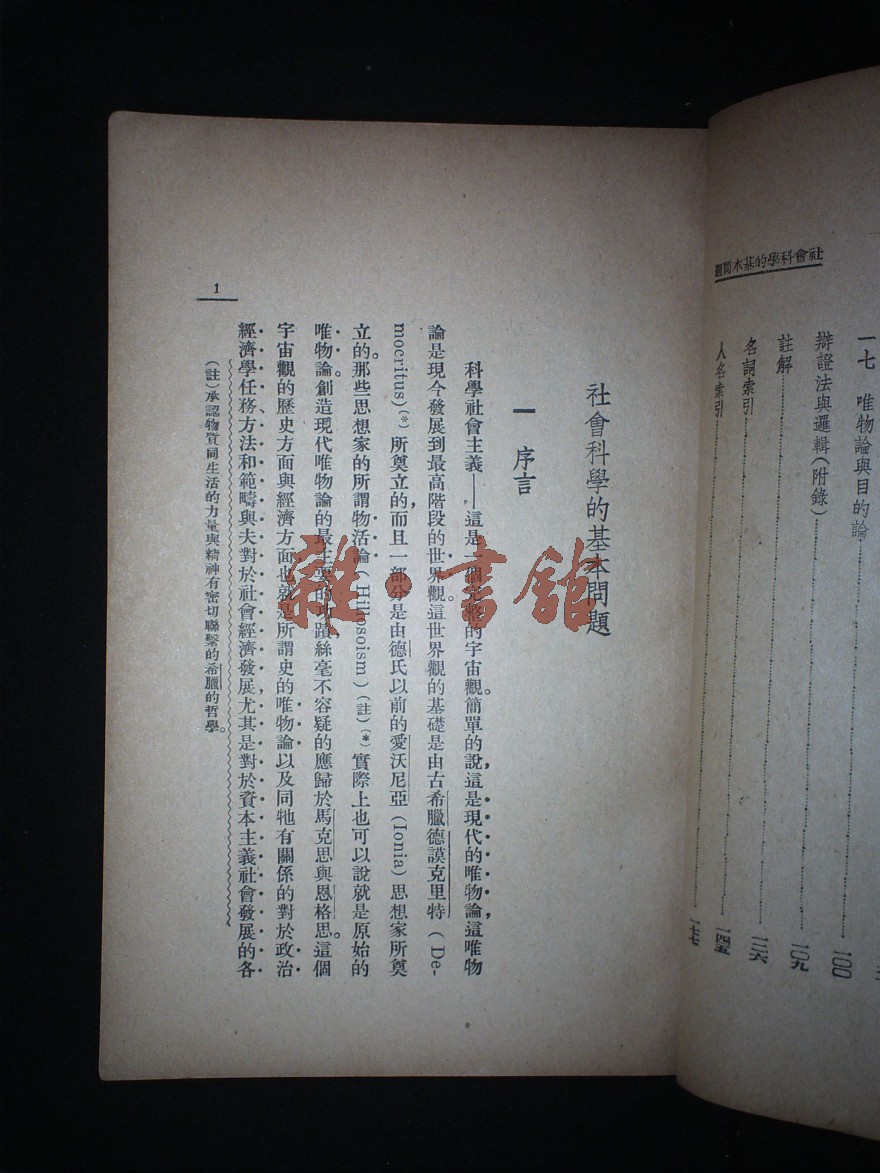 社會科學的基本問題
一七 唯物論與目的論 一〇〇
辯證法與邏輯(附錄) 一〇九
註解 一二六
名詞索引 一四五
人名索引
社會科學的基本問題
一 序言
科學社會主義——這是一個完整的宇宙觀。簡單的說,這是現代的唯物論,這唯物
論是現今發展到最高階段的世界觀。這世界觀的基礎是由古希臘德謨克里特(De-
mocritus)(*)所奠立的,而且一部分是由德氏以前的愛沃尼亞(Ionia)思想家所奠
立的。那些思想家的所謂物活論(Hilosoism)(註)(*)實際上也可以說就是原始的
唯物論。創造現代唯物論的最主要的功蹟絲毫不容疑的應歸於馬克思與恩格思。這個
宇宙觀的歷史方面與經濟方面也就是所謂史的唯物論以及同牠有關係的對於政治
經濟學任務、方法和範疇與夫對於社會經濟發展,尤其是對於資本主義社會發展的各
(註)承認物質同生活的力量與精神有密切聯繫的希臘的哲學。
1
雜·書館